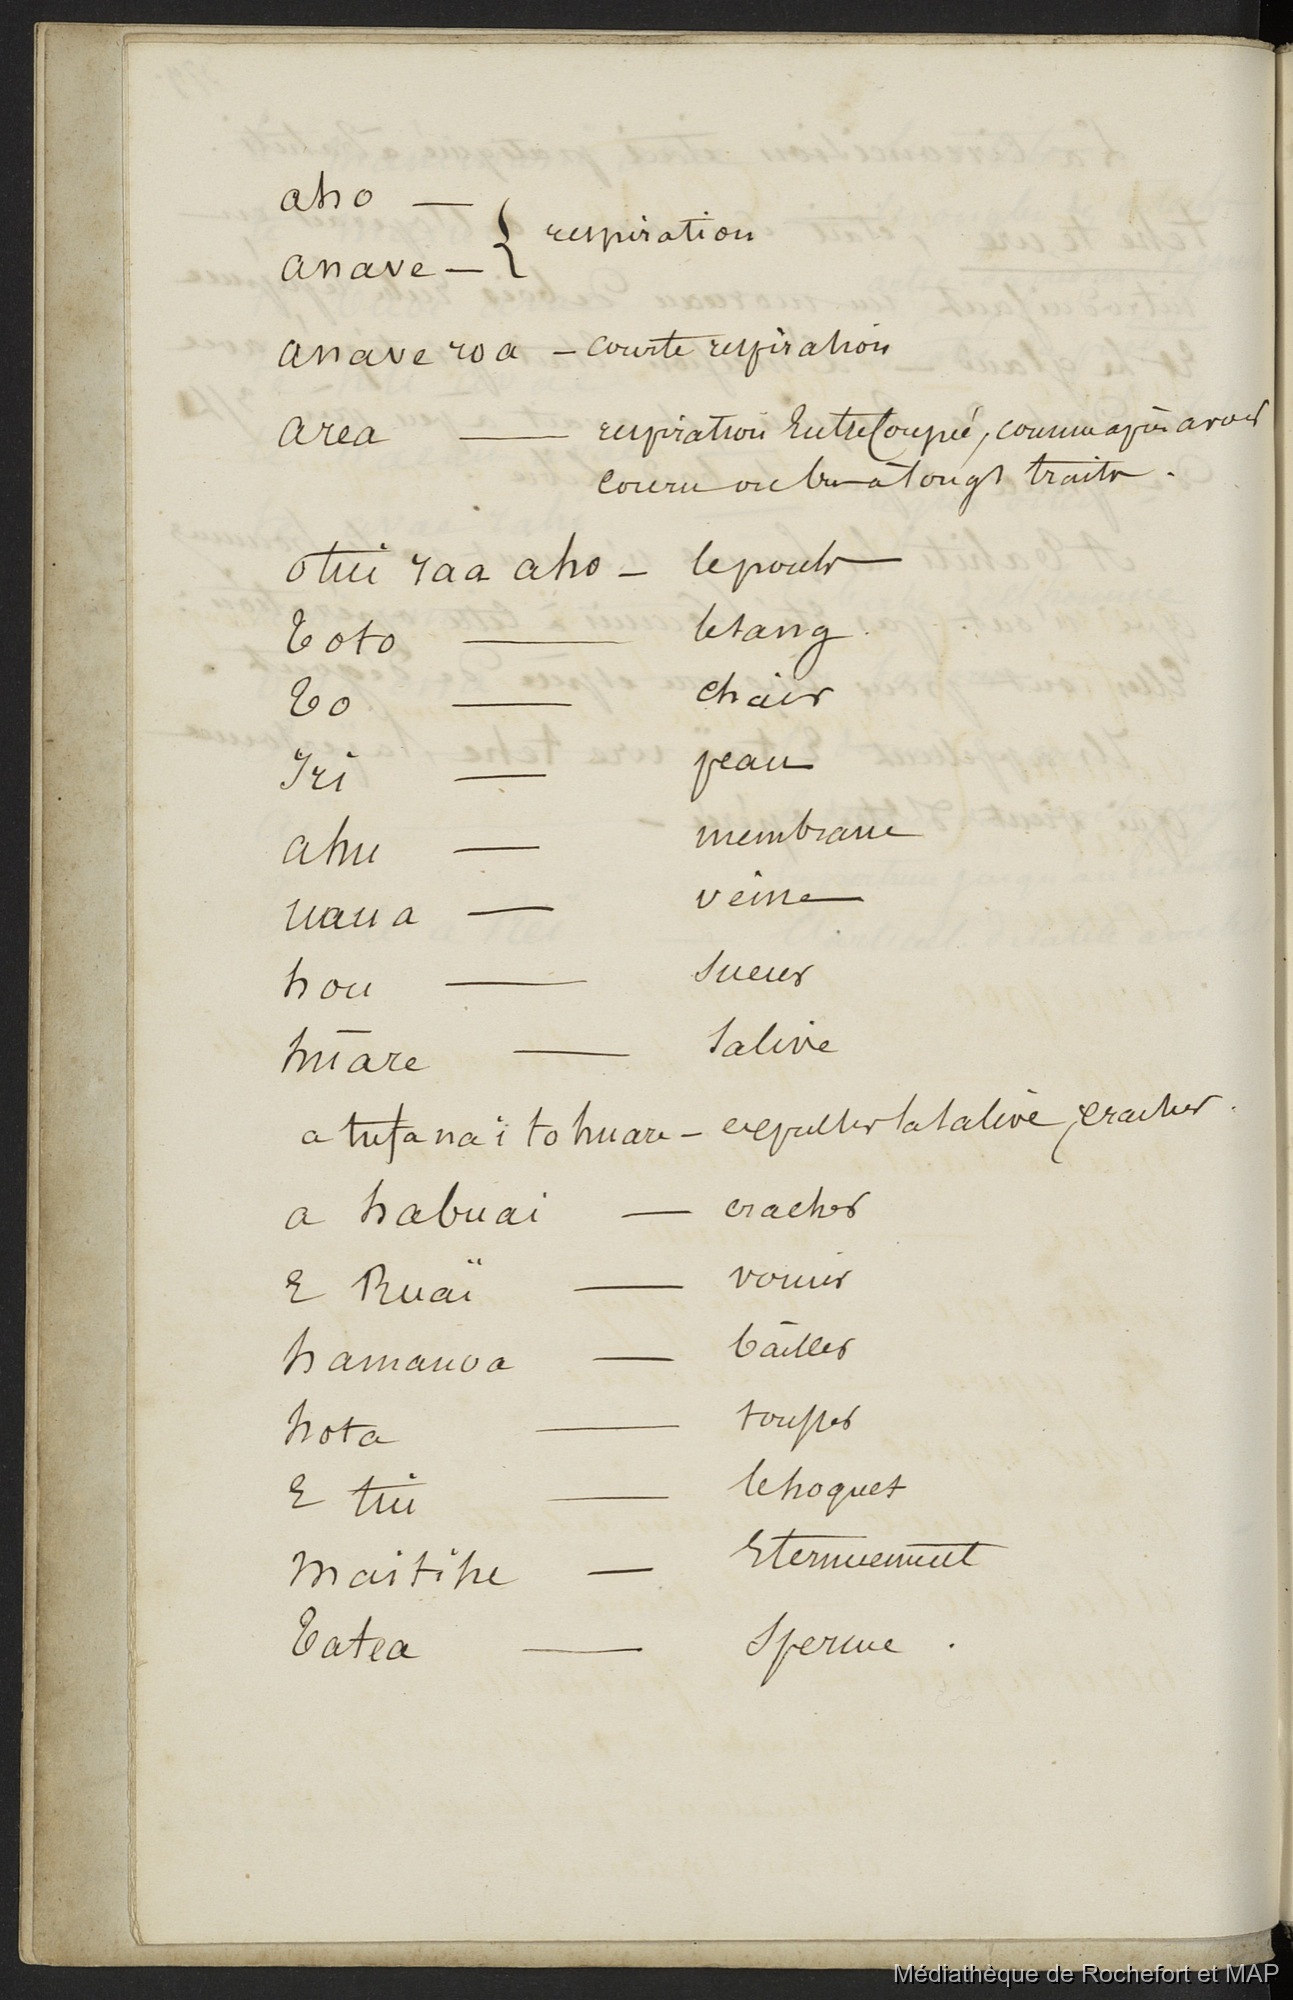 aho —
{ respiration
anave —
anave roa — courte respiration
area — respiration Entrecoupée, comme après avoir
couru ou bu à longs traits.
otui raa aho — le pouls
Toto — le sang
Io — chair
Iri — peau
ahu — membrane
uaua — veine
hou — sueur
hūare — salive
a tufa na i to huare — expulser la salive, cracher.
a habuai — cracher
E Ruaï — vomir
hamauoa — bâiller
hota — tousser
E tui — le hoquet
maitihe — Eternuement
Tatea — Sperme.
Médiathèque de Rochefort et MAP